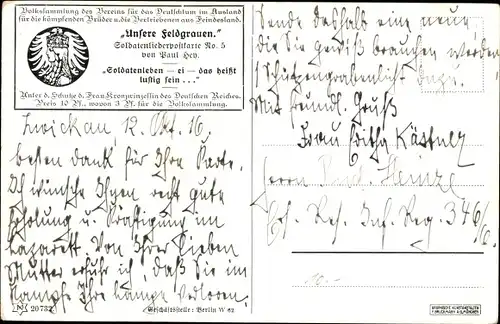 Volkssammlung des Vereins für das Deutschtum im Ausland
für die kämpfenden Brüder u. die Vertriebenen aus Feindesland.
„Unsere Feldgrauen."
Soldatenliederpostkarte No. 5
von Paul Hey.
„Soldatenleben — ei — das heißt
lustig sein ..."
Unter d. Schutze d. Frau Kronprinzessin des Deutschen Reiches.
Preis 10 Pf., wovon 3 Pf. für die Volkssammlung.
Zwickau, 12. Okt. 16.
besten Dank für Ihre Karte.
Ich wünsche Ihnen recht gute
Erholung u. Kräftigung im
Lazarett. Von Ihrer lieben
Mutter erfuhr ich, daß Sie im
Kampfe Ihre Lampe verloren.
Sende deshalb eine neue,
die Sie gewiß brauchen werden
1 Schützengrabenlicht dazu.
Mit freundl. Gruß
Frau Editha
Herrn Paul Heinze
Ers. Res. Inf. Reg. 346
10.-
20732
Geschäftsstelle: Berlin W 62